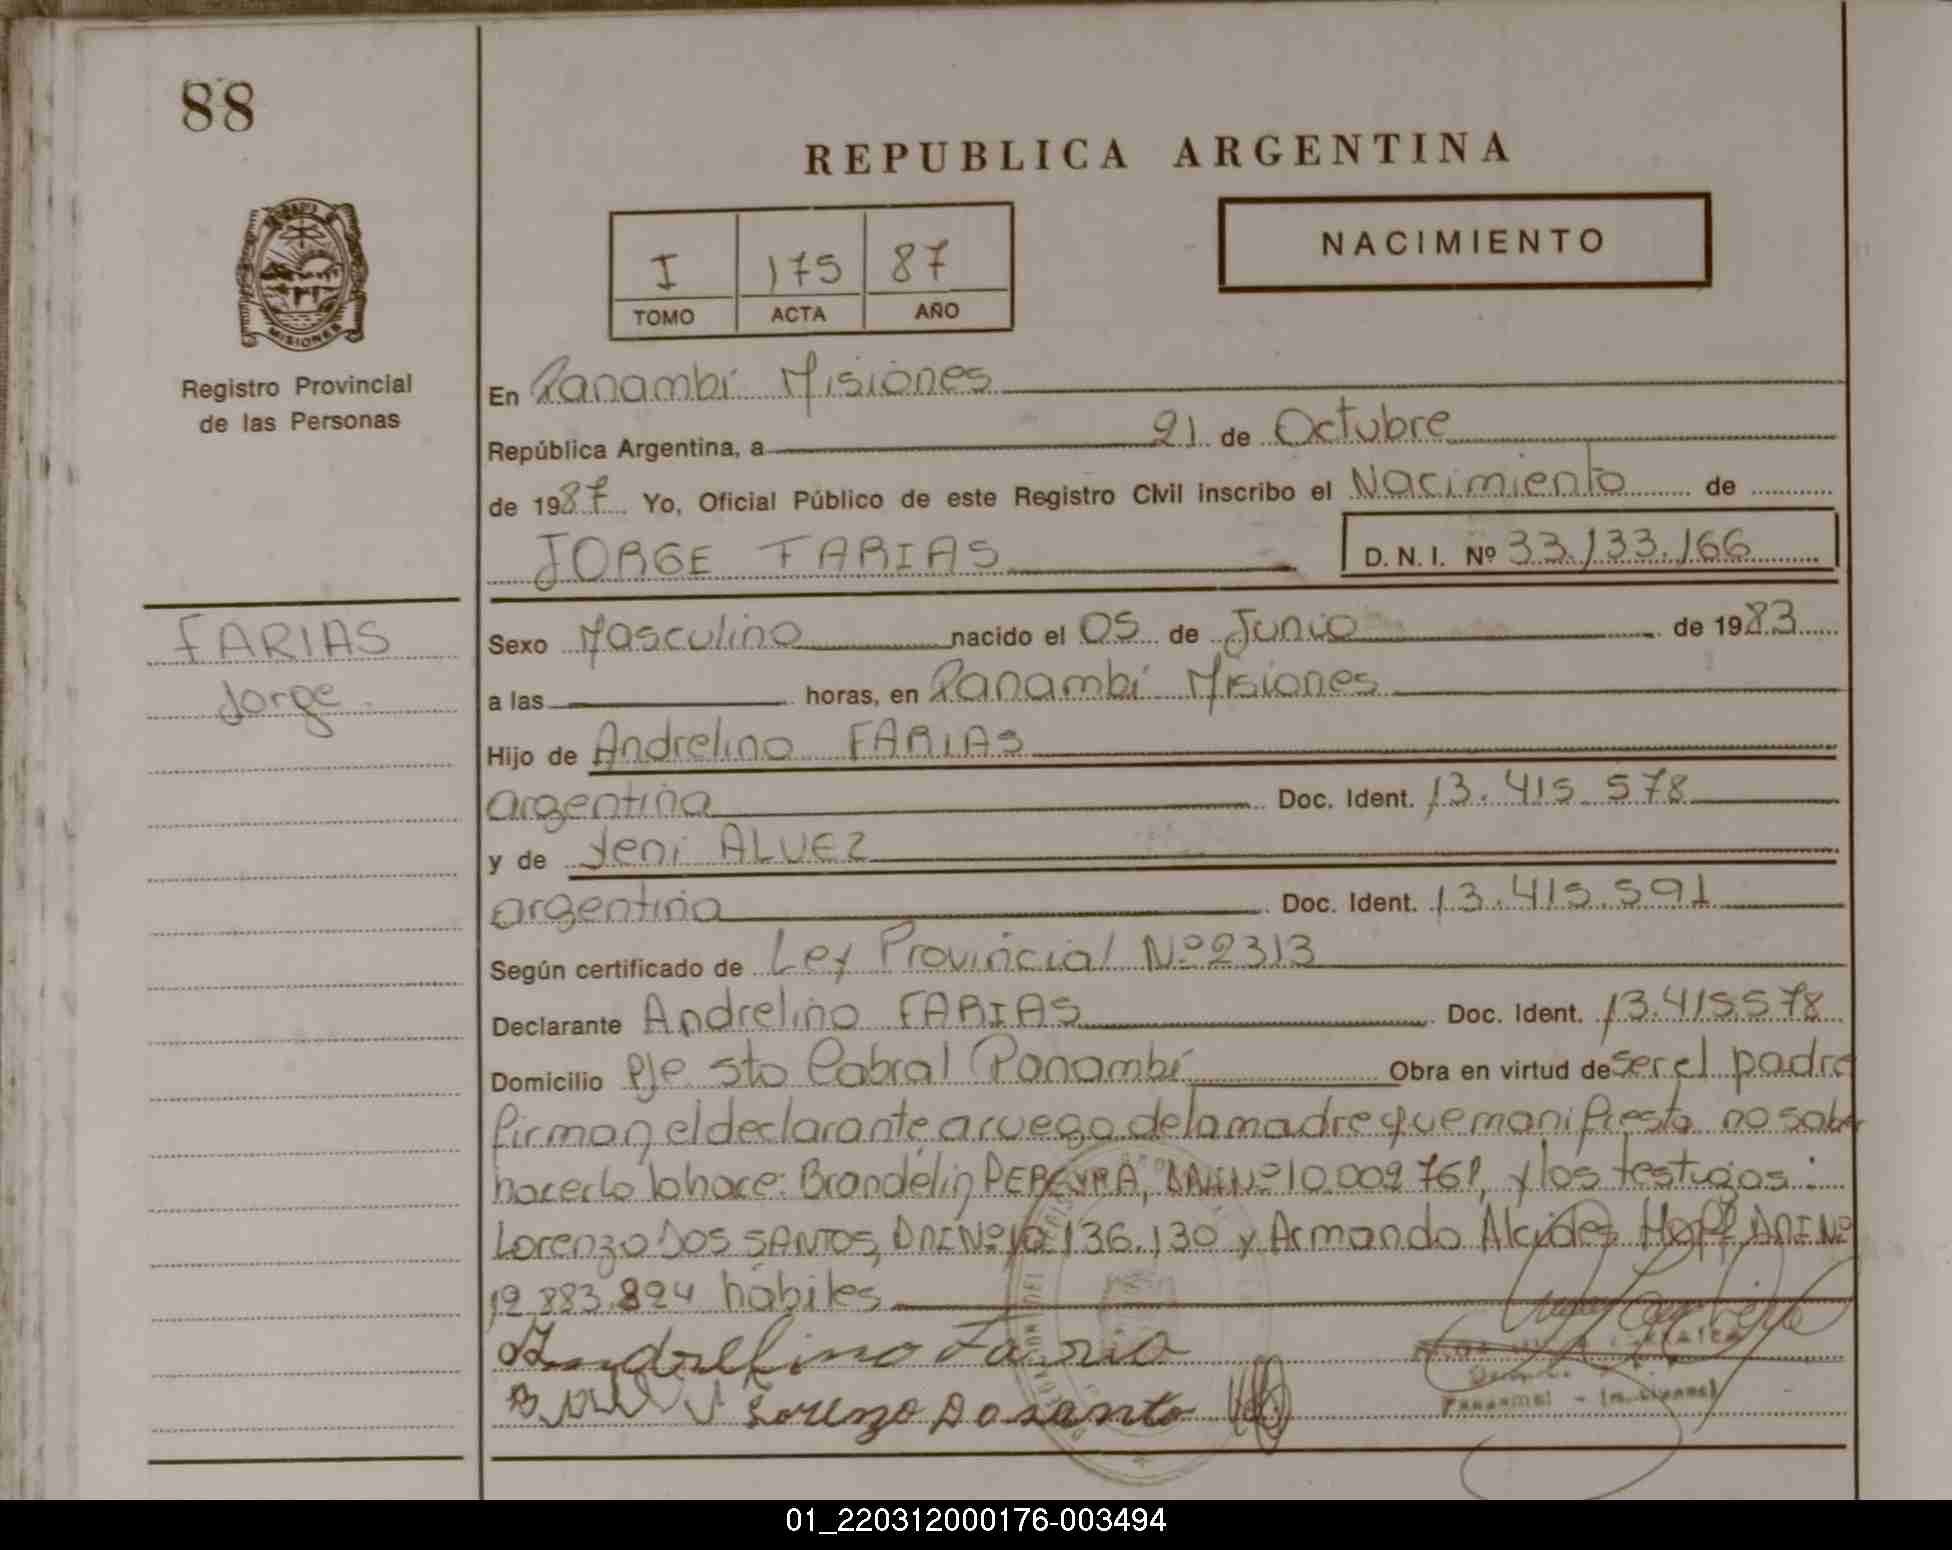 88
REPUBLICA ARGENTINA
NACIMIENTO
I 175 87
TOMO ACTA AÑO
MISIONES
Registro Provincial
de las Personas
En Panambí Misiones
República Argentina, a 21 de Octubre
de 1987 Yo, Oficial Público de este Registro Civil inscribo el Nacimiento de
JORGE FARIAS D. N. I. Nº 33.133.166
FARIAS
Jorge.
Sexo Masculino nacido el 05 de Junio de 1983
a las horas, en Panambí Misiones
Hijo de Andrelino FARIAS
argentina Doc. Ident. 13.415.578
y de Yeni ALVEZ
argentina Doc. Ident. 13.415.591
Según certificado de Ley Provincial Nº 2313
Declarante Andrelino FARIAS Doc. Ident. 13.415.578
Domicilio Pje Sto Cabral Panambí Obra en virtud de ser el padre
firman, el declarante, a ruego de la madre que manifiesta no saber
hacerlo lo hace: Brandelin PEREYRA, DNI Nº 10.009.761, y los testigos:
Lorenzo DOS SANTOS, DNI Nº 10.136.130 y Armando Alcides Hopf DNI Nº
12.883.824 hábiles
Andrelino Faria
Lorenzo Dosanto
01_220312000176-003494